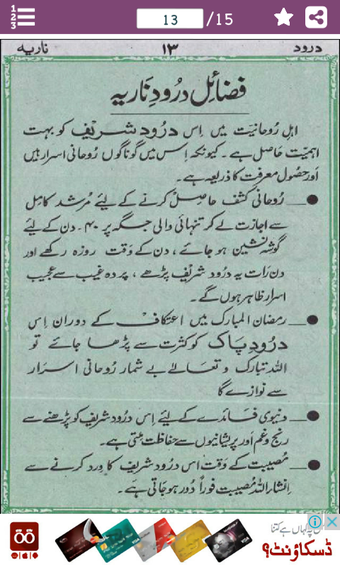 13 /15
درود
۱۳
ناریہ
فضائل درودِ ناریہ
اہل روحانیت میں اِس درود شریف کو بہت
اہمیت حاصل ہے۔ کیونکہ اِس میں گوناگوں رُوحانی اسرار ہیں
اور حصُولِ معرفت کا ذریعہ ہے۔
رُوحانی کشف حاصل کرنے کے لیئے مُرشد کامل
سے اجازت لے کر تنہائی والی جگہ پر ۴۰۔ دن کے لیئے
گوشہ نشین ہو جائے، دن کے وقت روزہ رکھے اور
دن رات یہ درود شریف پڑھے، پردہ غیب سے عجیب
اسرار ظاہر ہوں گے۔
رمضان المبارک میں اعتکاف کے دوران اِس
درودِ پاک کو کثرت سے پڑھا جائے تو
اللہ تبارک و تعالےٰ بے شمار رُوحانی اسرار
سے نوازے گا
دنیوی فائدے کے لیئے اِس درود شریف کو پڑھنے سے
رنج و غم اور پریشانیوں سے حفاظت ہوتی ہے۔
مُصیبت کے وقت اس درود شریف کا وِرد کرنے سے
اِنشاء اللہ مُصیبت فوراً دُور ہو جاتی ہے۔
کہاں ہے کتنا
ڈسکاؤنٹ؟